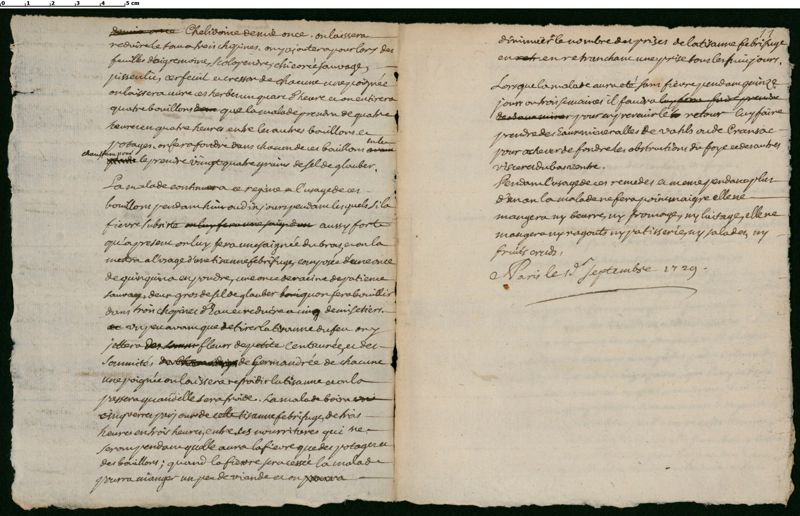 demie once Chelidoine demie once. on laissera
reduire le tout a trois chopines. on y ajoutera pour lors des
feuilles d'aigremoine, scolopendre, chicorée sauvage,
pissenlit, cerfeuil et cresson de chacune une poignée
on laissera cuire ces herbes un quart d'heure et on en tirera
quatre bouillons que la malade prendra de quatre
heures en quatre heures entre les autres bouillons et
potages, on fera fondre dans chacun de ces bouillons
chauds pour
le prendre vingt quatre grains de sel de glauber.
La malade continuera ce regime et l'usage de ces
bouillons pendant huit ou dix jours pendant lesquels si la
fievre subsiste on luy fera une saignée aussy forte
qu'a present on luy fera une saignée du bras, et on la
mettra a l'usage d'une tisanne febrifuge, composée d'une once
de quinquina en poudre, une once de racine de patience
sauvage, deux gros de sel de glauber qu'on fera bouillir
dans trois chopines d'eau et reduire a cinq demisetiers.
un peu avant que de tirer la tisanne du feu on y
jettera fleurs de petite centaurée, et des
sommités de Germandrée de chacune
une poignée on laissera refroidir la tisanne et on la
passera quand elle sera froide. La malade boira
cinq verres par jour de cette tisanne febrifuge, de trois
heures en trois heures, entre ses nourritures qui ne
seront pendant qu'elle aura la fievre que des potages et
des bouillons; quand la fievre sera cessée la malade
pourra manger un peu de viande et on pourra
diminuer le nombre des prises de la tisanne febrifuge
en en retranchant une prise tous les huit jours.
Lorsque la malade aura eté sans fievre pendant quinze
jours ou trois semaines il faudra luy faire prendre
pour en prevenir le retour luy faire
prendre des eaux minerales de Vahls ou de Cransac
pour achever de fondre les obstructions du foye et des autres
visceres du bas ventre.
Pendant l'usage de ces remedes et meme pendant plus
d'un an la malade ne fera point maigre elle ne
mangera ny beurre, ny fromage, ny laitage, elle ne
mangera ny ragouts ny patisserie, ny salades, ny
fruits cruds.
A Paris le 1er Septembre 1729.